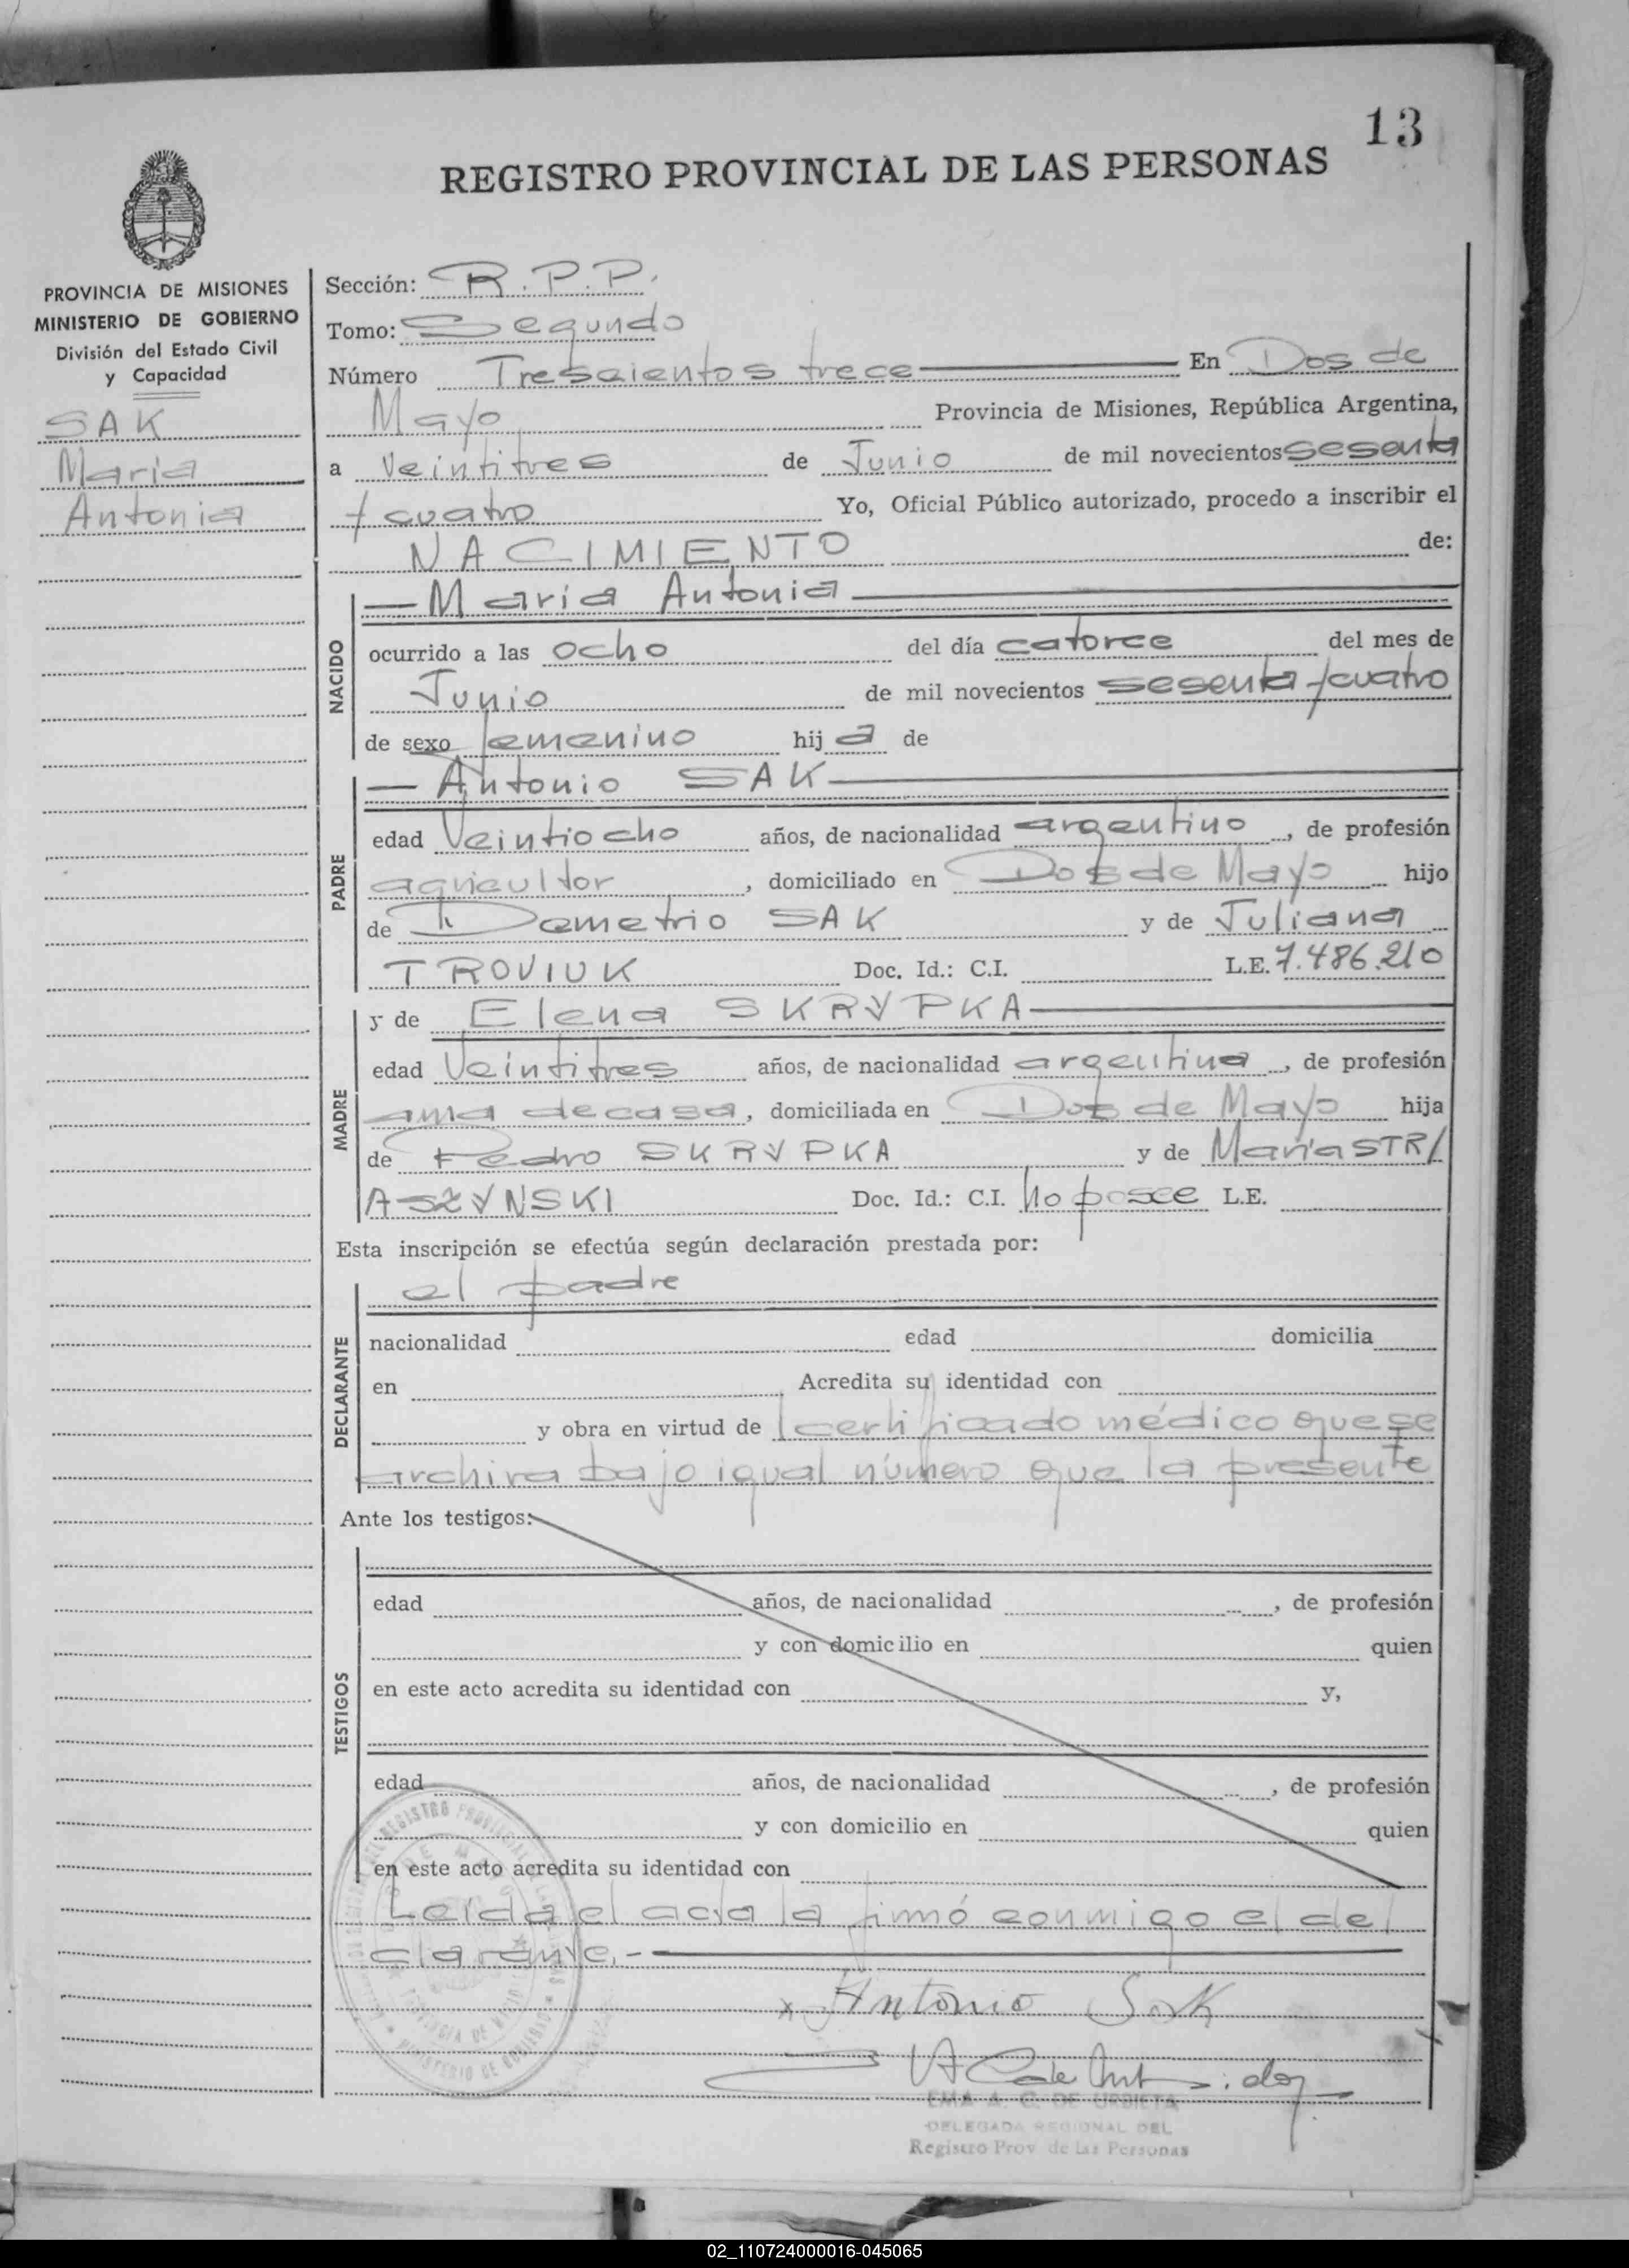 13
REGISTRO PROVINCIAL DE LAS PERSONAS
PROVINCIA DE MISIONES
MINISTERIO DE GOBIERNO
División del Estado Civil
y Capacidad
SAK
Maria
Antonia
Sección: R.P.P.
Tomo: Segundo
Número Trescientos trece En Dos de
Mayo Provincia de Misiones, República Argentina,
a veintitres de Junio de mil novecientos sesenta
y cuatro Yo, Oficial Público autorizado, procedo a inscribir el
NACIMIENTO de:
NACIDO
— Maria Antonia
ocurrido a las ocho del día catorce del mes de
Junio de mil novecientos sesenta y cuatro
de sexo femenino hij a de
PADRE
— Antonio SAK
edad Veintiocho años, de nacionalidad argentino, de profesión
agricultor, domiciliado en Dos de Mayo hijo
de Demetrio SAK y de Juliana
TROVIUK Doc. Id.: C.I. L.E. 7.486.210
MADRE
y de Elena SKRYPKA
edad Veintitres años, de nacionalidad argentina, de profesión
ama de casa, domiciliada en Dos de Mayo hija
de Pedro SKRYPKA y de María STR/
ASZYNSKI Doc. Id.: C.I. No posee L.E.
Esta inscripción se efectúa según declaración prestada por:
DECLARANTE
el padre
nacionalidad edad domicilia
en Acredita su identidad con
y obra en virtud de certificado médico que se
archiva bajo igual número que la presente
Ante los testigos:
TESTIGOS
edad años, de nacionalidad , de profesión
y con domicilio en quien
en este acto acredita su identidad con y,
edad años, de nacionalidad , de profesión
y con domicilio en quien
en este acto acredita su identidad con
Leída el acta la firmó conmigo el de
clarante.-
x Antonio Sak
EMA A. C. DE URBIETA
DELEGADA REGIONAL DEL
Registro Prov de las Personas
02_110724000016-045065